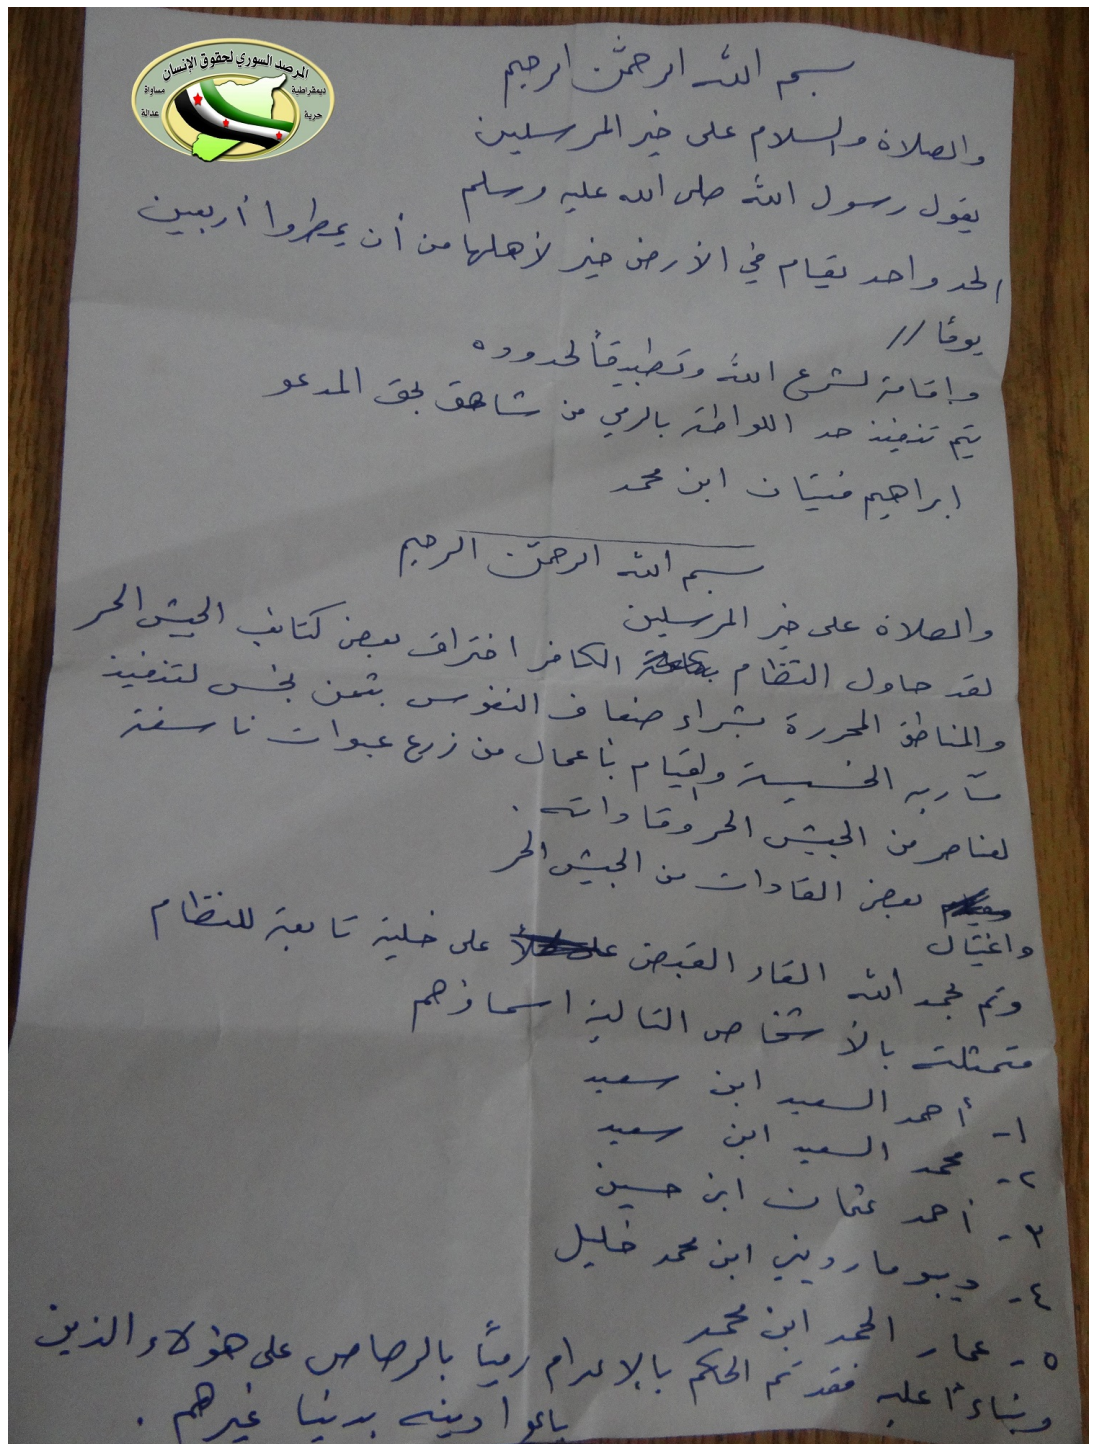 المرصد السوري لحقوق الإنسان
ديمقراطية
مساواة
حرية
عدالة
بسم الله الرحمن الرحيم
والصلاة والسلام على خير المرسلين
يقول رسول الله صلى الله عليه وسلم
لحد واحد يقام في الأرض خير لأهلها من أن يمطروا أربعين
يومًا //
وإقامة لشرع الله وتطبيقاً لحدوده
يتم تنفيذ حد اللواطة بالرمي من شاهق بحق المدعو
ابراهيم فتيان ابن محمد
بسم الله الرحمن الرحيم
والصلاة على خير المرسلين
لقد حاول النظام الكافر اختراق بعض كتائب الجيش الحر
والمناطق المحررة بشراء ضعاف النفوس بثمن بخس لتنفيذ
مآربه الخسيسة ولقيام بأعمال من زرع عبوات ناسفة
لعناصر من الجيش الحر وقاداته .
بعض القادات من الجيش الحر
واغتيال
وتم بحمد الله القاء القبض على خلية تابعة للنظام
متمثلة بالأشخاص التالية اسماؤهم
١- أحمد السعيد ابن سعيد
٢- محمد السعيد ابن سعيد
٣- أحمد عثمان ابن حسين
٤- ديبو مارديني ابن محمد خليل
٥- عمار الحمد ابن محمد
وبناءً عليه فقد تم الحكم بالإعدام رمياً بالرصاص على هؤلاء الذين
باعوا دينهم بدنيا غيرهم .